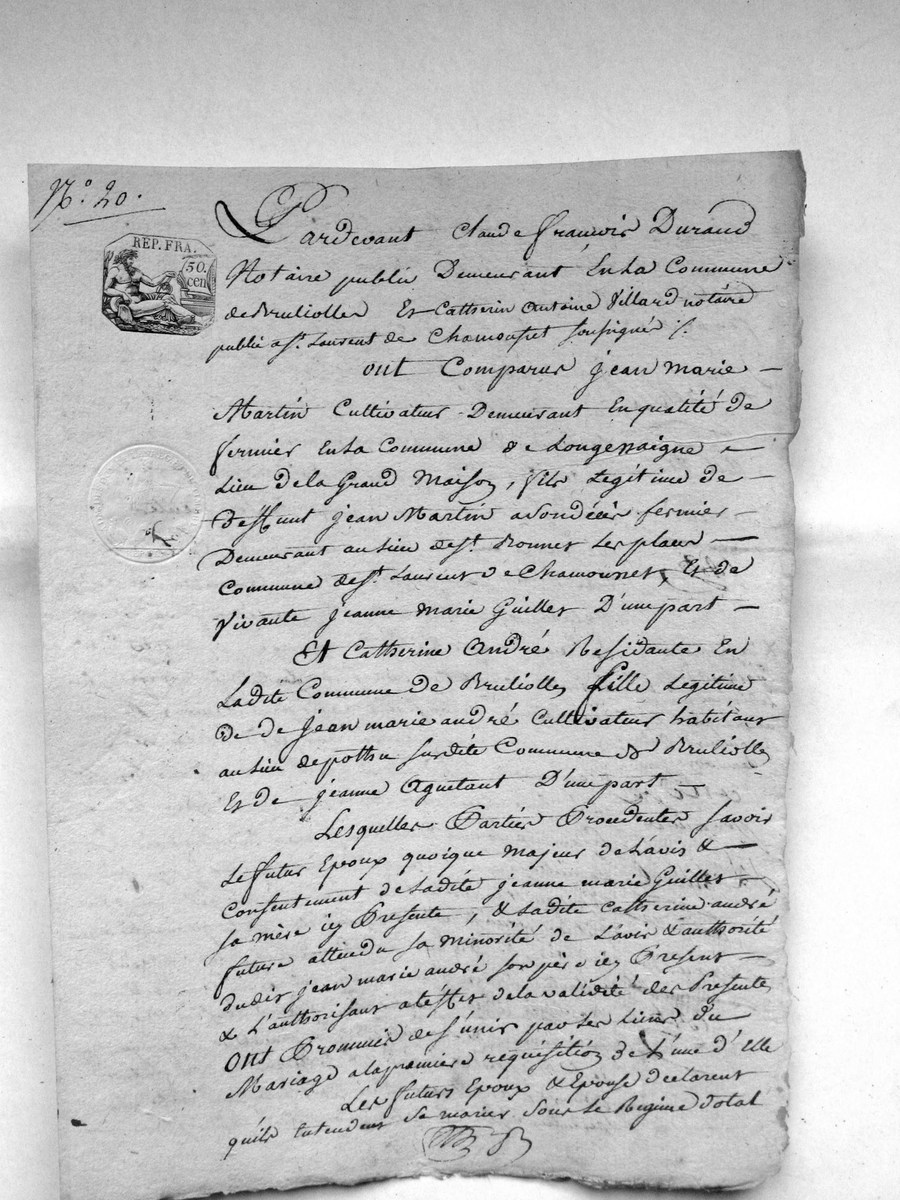 N.º 20.
REP. FRA.
50.
cen
Pardevant Claude françois Durand
Notaire public Demeurant En La Commune
de Brulliolles Et Catherin Antoine Villard notaire
public a St. Laurent de Chamousset soussignés
ont Comparus Jean Marie
Martin Cultivateur Demeurant En qualité de
fermier En La Commune de Longessaigne
Lieu de la Grand Maison, fils Legitime de
Deffunt jean Martin a son décès fermier
Demeurant au Lieu de St. Bonnet Les places
Commune de St. Laurent de Chamousset, Et de
Vivante Jeanne Marie Guillet D'une part
Et Catherine André Residante En
Ladite Commune de Brulliolles fille Legitime
de de Jean marie andré Cultivateur habitant
au Lieu de susdite Commune de Brulliolles
Et de jeanne Aguetant D'une part
Lesquelles Parties Procedentes Savoir
Le futur Epoux quoique majeur de L'avis &
Consentement de Ladite jeanne marie Guillet
sa mère icy Presente, & Ladite Catherine andré
future attendu sa minorité de L'avis & authorité
dudit jean marie andré son père icy Present
& L'authorisant a l'effet de la validité des Presentes
ont Prommis de s'unir par Les Liens du
Mariage a la premiere requisition de L'une d'Elle
Les futurs Epoux & Epouse declarent
qu'ils Entendent se marier sous Le Regime dotal